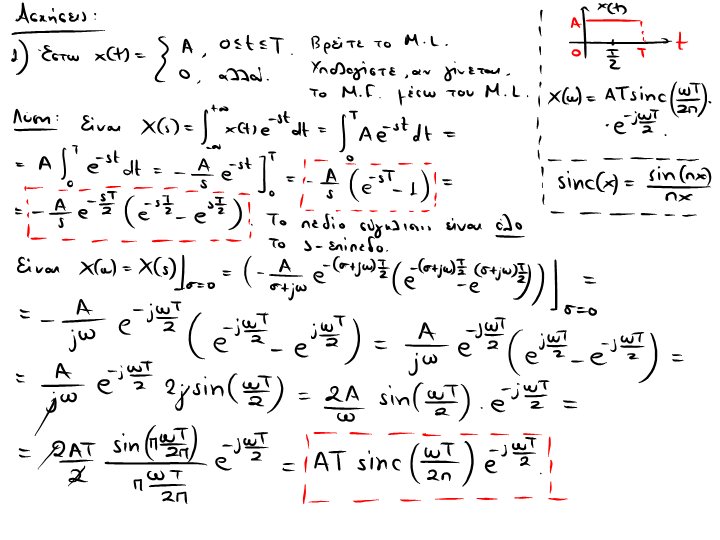 Ασκήσεις:
1) Έστω x(t) = { A, 0≤t≤T. Βρείτε το M.L.
0, αλλού. Υπολογίστε, αν γίνεται,
το M.F. μέσω του M.L.
Λύση: Είναι X(s) = ∫_{-∞}^{+∞} x(t) e^{-st} dt = ∫_0^T A e^{-st} dt =
= A ∫_0^T e^{-st} dt = -A/s e^{-st} ]_0^T = -A/s (e^{-sT} - 1) =
= -A/s e^{-sT/2} (e^{-sT/2} - e^{sT/2}). Το πεδίο σύγκλισης είναι όλο
το s-επίπεδο.
Είναι X(ω) = X(s)]_{σ=0} = (-A/(σ+jω) e^{-(σ+jω)T/2} (e^{-(σ+jω)T/2} - e^{(σ+jω)T/2}))]_{σ=0} =
= -A/jω e^{-jωT/2} (e^{-jωT/2} - e^{jωT/2}) = A/jω e^{-jωT/2} (e^{jωT/2} - e^{-jωT/2}) =
= A/jω e^{-jωT/2} 2j sin(ωT/2) = 2A/ω sin(ωT/2) · e^{-jωT/2} =
= 2AT/2 sin(π ωT/2π)/(π ωT/2π) e^{-jωT/2} = AT sinc(ωT/2π) e^{-jωT/2}.
x(t)
A
0 T/2 T t
X(ω) = AT sinc(ωT/2π).
· e^{-jωT/2}.
sinc(x) = sin(πx)/πx